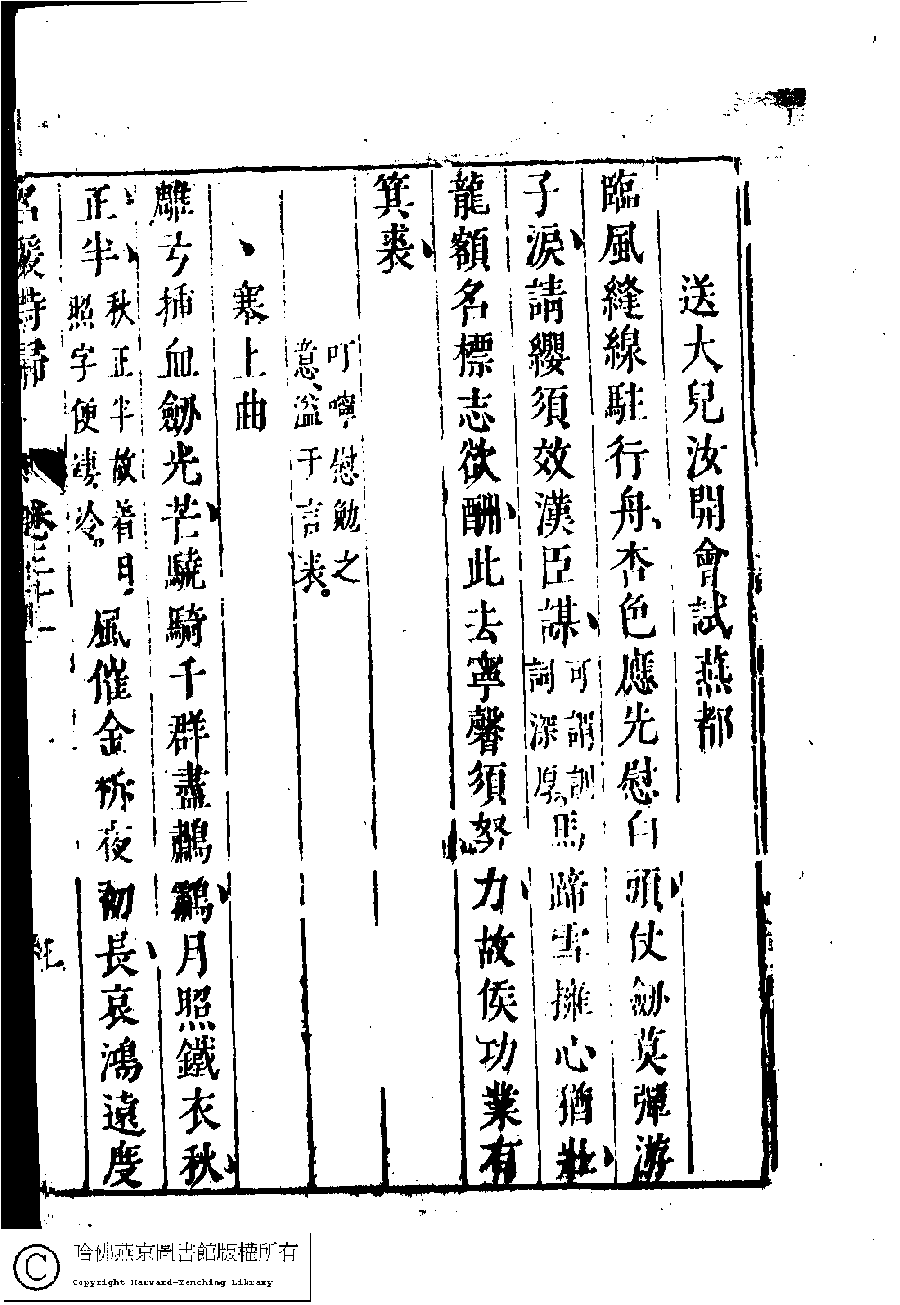 送大兒汝開會試燕都
臨風縫線駐行舟杏色應先慰白頭仗劒莫彈游
子淚請纓須效漢臣謀可謂訓詞深厚馬蹄雪擁心猶壯
龍額名標志欲酬此去寧馨須努力故侯功業有
箕裘
叮嚀慰勉之
意溢于言表
塞上曲
雕弓插血劒光芒驍騎千群盡鷫鸘月照鐵衣秋
正半秋正半故着日照字便凄冷風催金柝夜初長哀鴻遠度
名媛詩歸
卷三十一
哈佛燕京圖書館版權所有
Copyright Harvard-Yenching Library